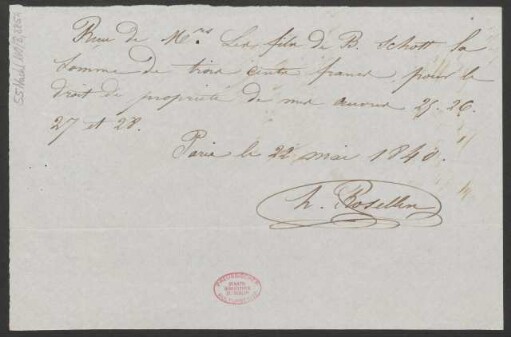 Reçu de M.rs Les fils de B. Schott la
Somme de trois cents francs, pour le
droit de propriété de mes œuvres 25. 26.
27 et 28.
Paris le 22 mai 1840.
h. Rosellen